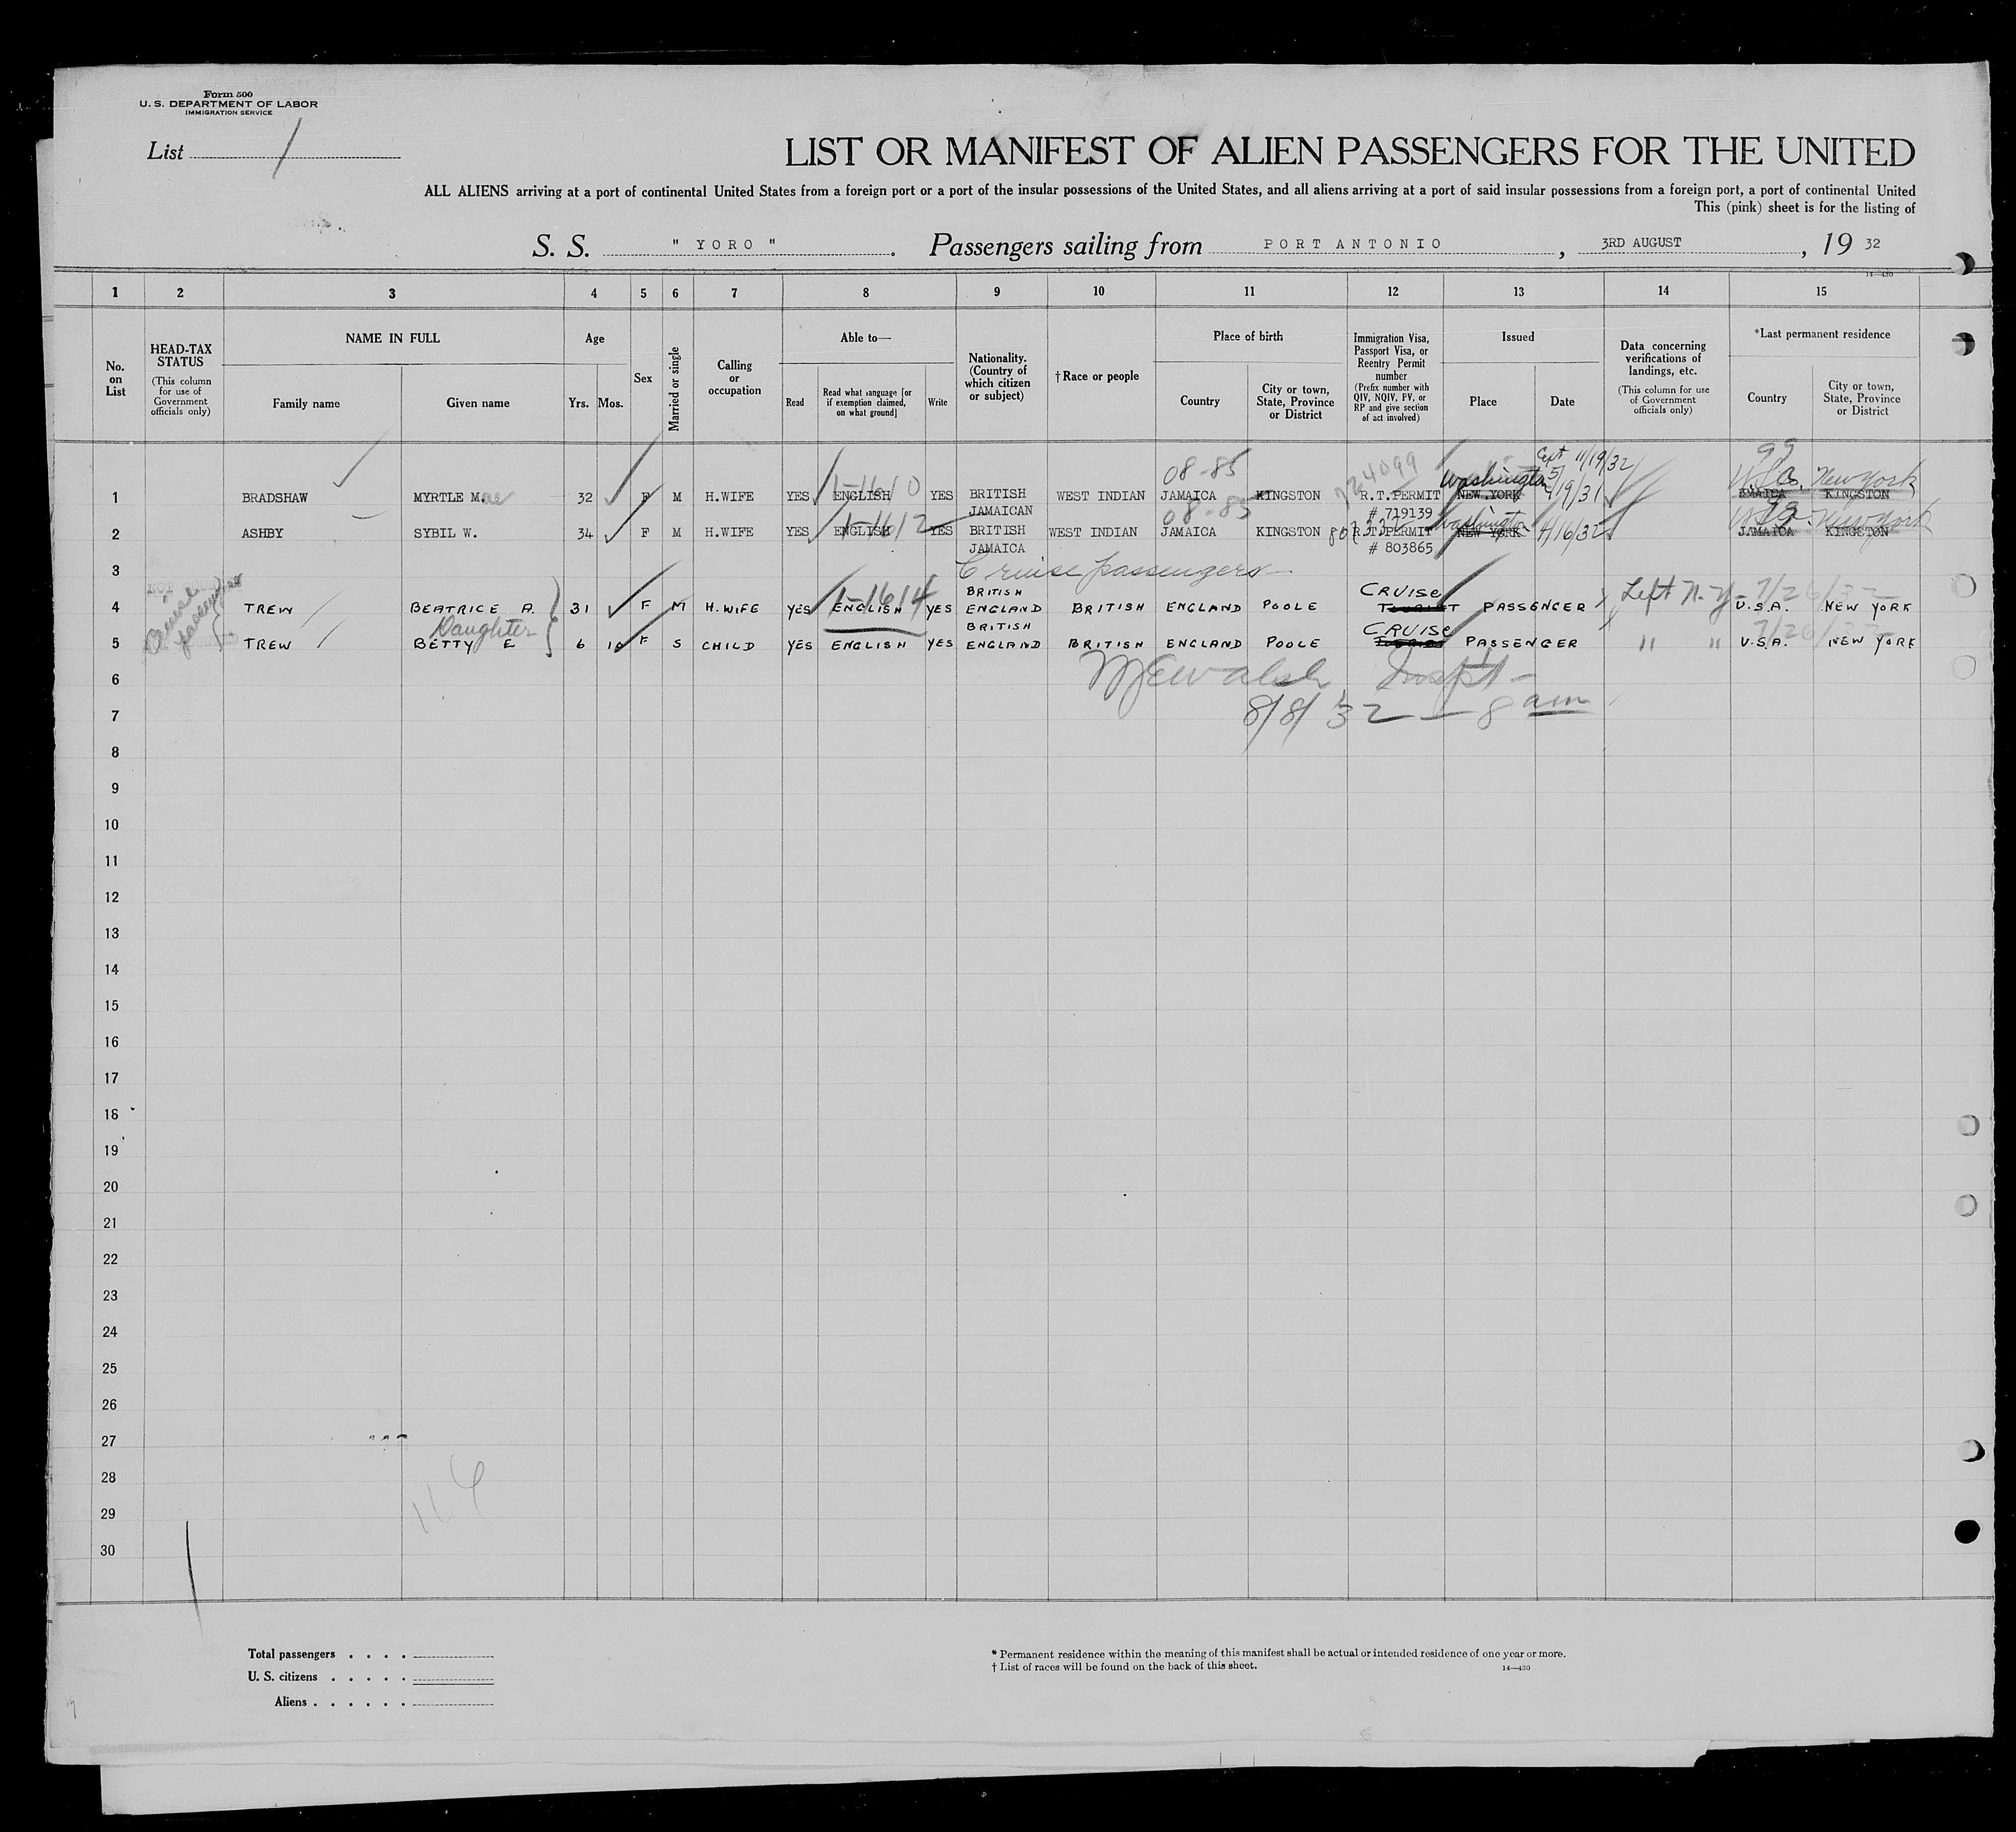 Form 500
U. S. DEPARTMENT OF LABOR
IMMIGRATION SERVICE
List 1
LIST OR MANIFEST OF ALIEN PASSENGERS FOR THE UNITED
ALL ALIENS arriving at a port of continental United States from a foreign port or a port of the insular possessions of the United States, and all aliens arriving at a port of said insular possessions from a foreign port, a port of continental United
This (pink) sheet is for the listing of
S. S. " YORO ". Passengers sailing from PORT ANTONIO, 3RD AUGUST, 19 32
14—430
1 2 3 4 5 6 7 8 9 10 11 12 13 14 15
No. on List
HEAD-TAX STATUS (This column for use of Government officials only)
NAME IN FULL
Family name Given name
Age
Yrs. Mos.
Sex
Married or single
Calling or occupation
Able to—
Read Read what language [or if exemption claimed, on what ground] Write
Nationality. (Country of which citizen or subject)
†Race or people
Place of birth
Country City or town, State, Province or District
Immigration Visa, Passport Visa, or Reentry Permit number (Prefix number with QIV, NQIV, PV, or RP and give section of act involved)
Issued
Place Date
Data concerning verifications of landings, etc. (This column for use of Government officials only)
*Last permanent residence
Country City or town, State, Province or District
08-85 724099 Washington 11/19/32 99
1 BRADSHAW MYRTLE M. 32 F M H.WIFE YES ENGLISH YES BRITISH WEST INDIAN JAMAICA KINGSTON R.T.PERMIT NEW YORK JAMAICA KINGSTON New York
1-1610
JAMAICAN # 719139
08-85 Washington
2 ASHBY SYBIL W. 34 F M H.WIFE YES ENGLISH YES BRITISH WEST INDIAN JAMAICA KINGSTON R.T.PERMIT NEW YORK 4/16/32 JAMAICA KINGSTON New York
1-1612
JAMAICA # 803865
3 Cruise passengers
Cruise passengers
BRITISH CRUISE
4 TREW BEATRICE A. 31 F M H.WIFE YES ENGLISH YES ENGLAND BRITISH ENGLAND POOLE TOURIST PASSENGER Left N.Y. 7/26/32 U.S.A. NEW YORK
1-1614
Daughter BRITISH CRUISE 7/26/32
5 TREW BETTY E 6 10 F S CHILD YES ENGLISH YES ENGLAND BRITISH ENGLAND POOLE TOURIST PASSENGER " " U.S.A. NEW YORK
6
7 8/8/32 — 8 am
8
9
10
11
12
13
14
15
16
17
18
19
20
21
22
23
24
25
26
27
28
29
30
Total passengers
U. S. citizens
Aliens
* Permanent residence within the meaning of this manifest shall be actual or intended residence of one year or more.
† List of races will be found on the back of this sheet.
14—430